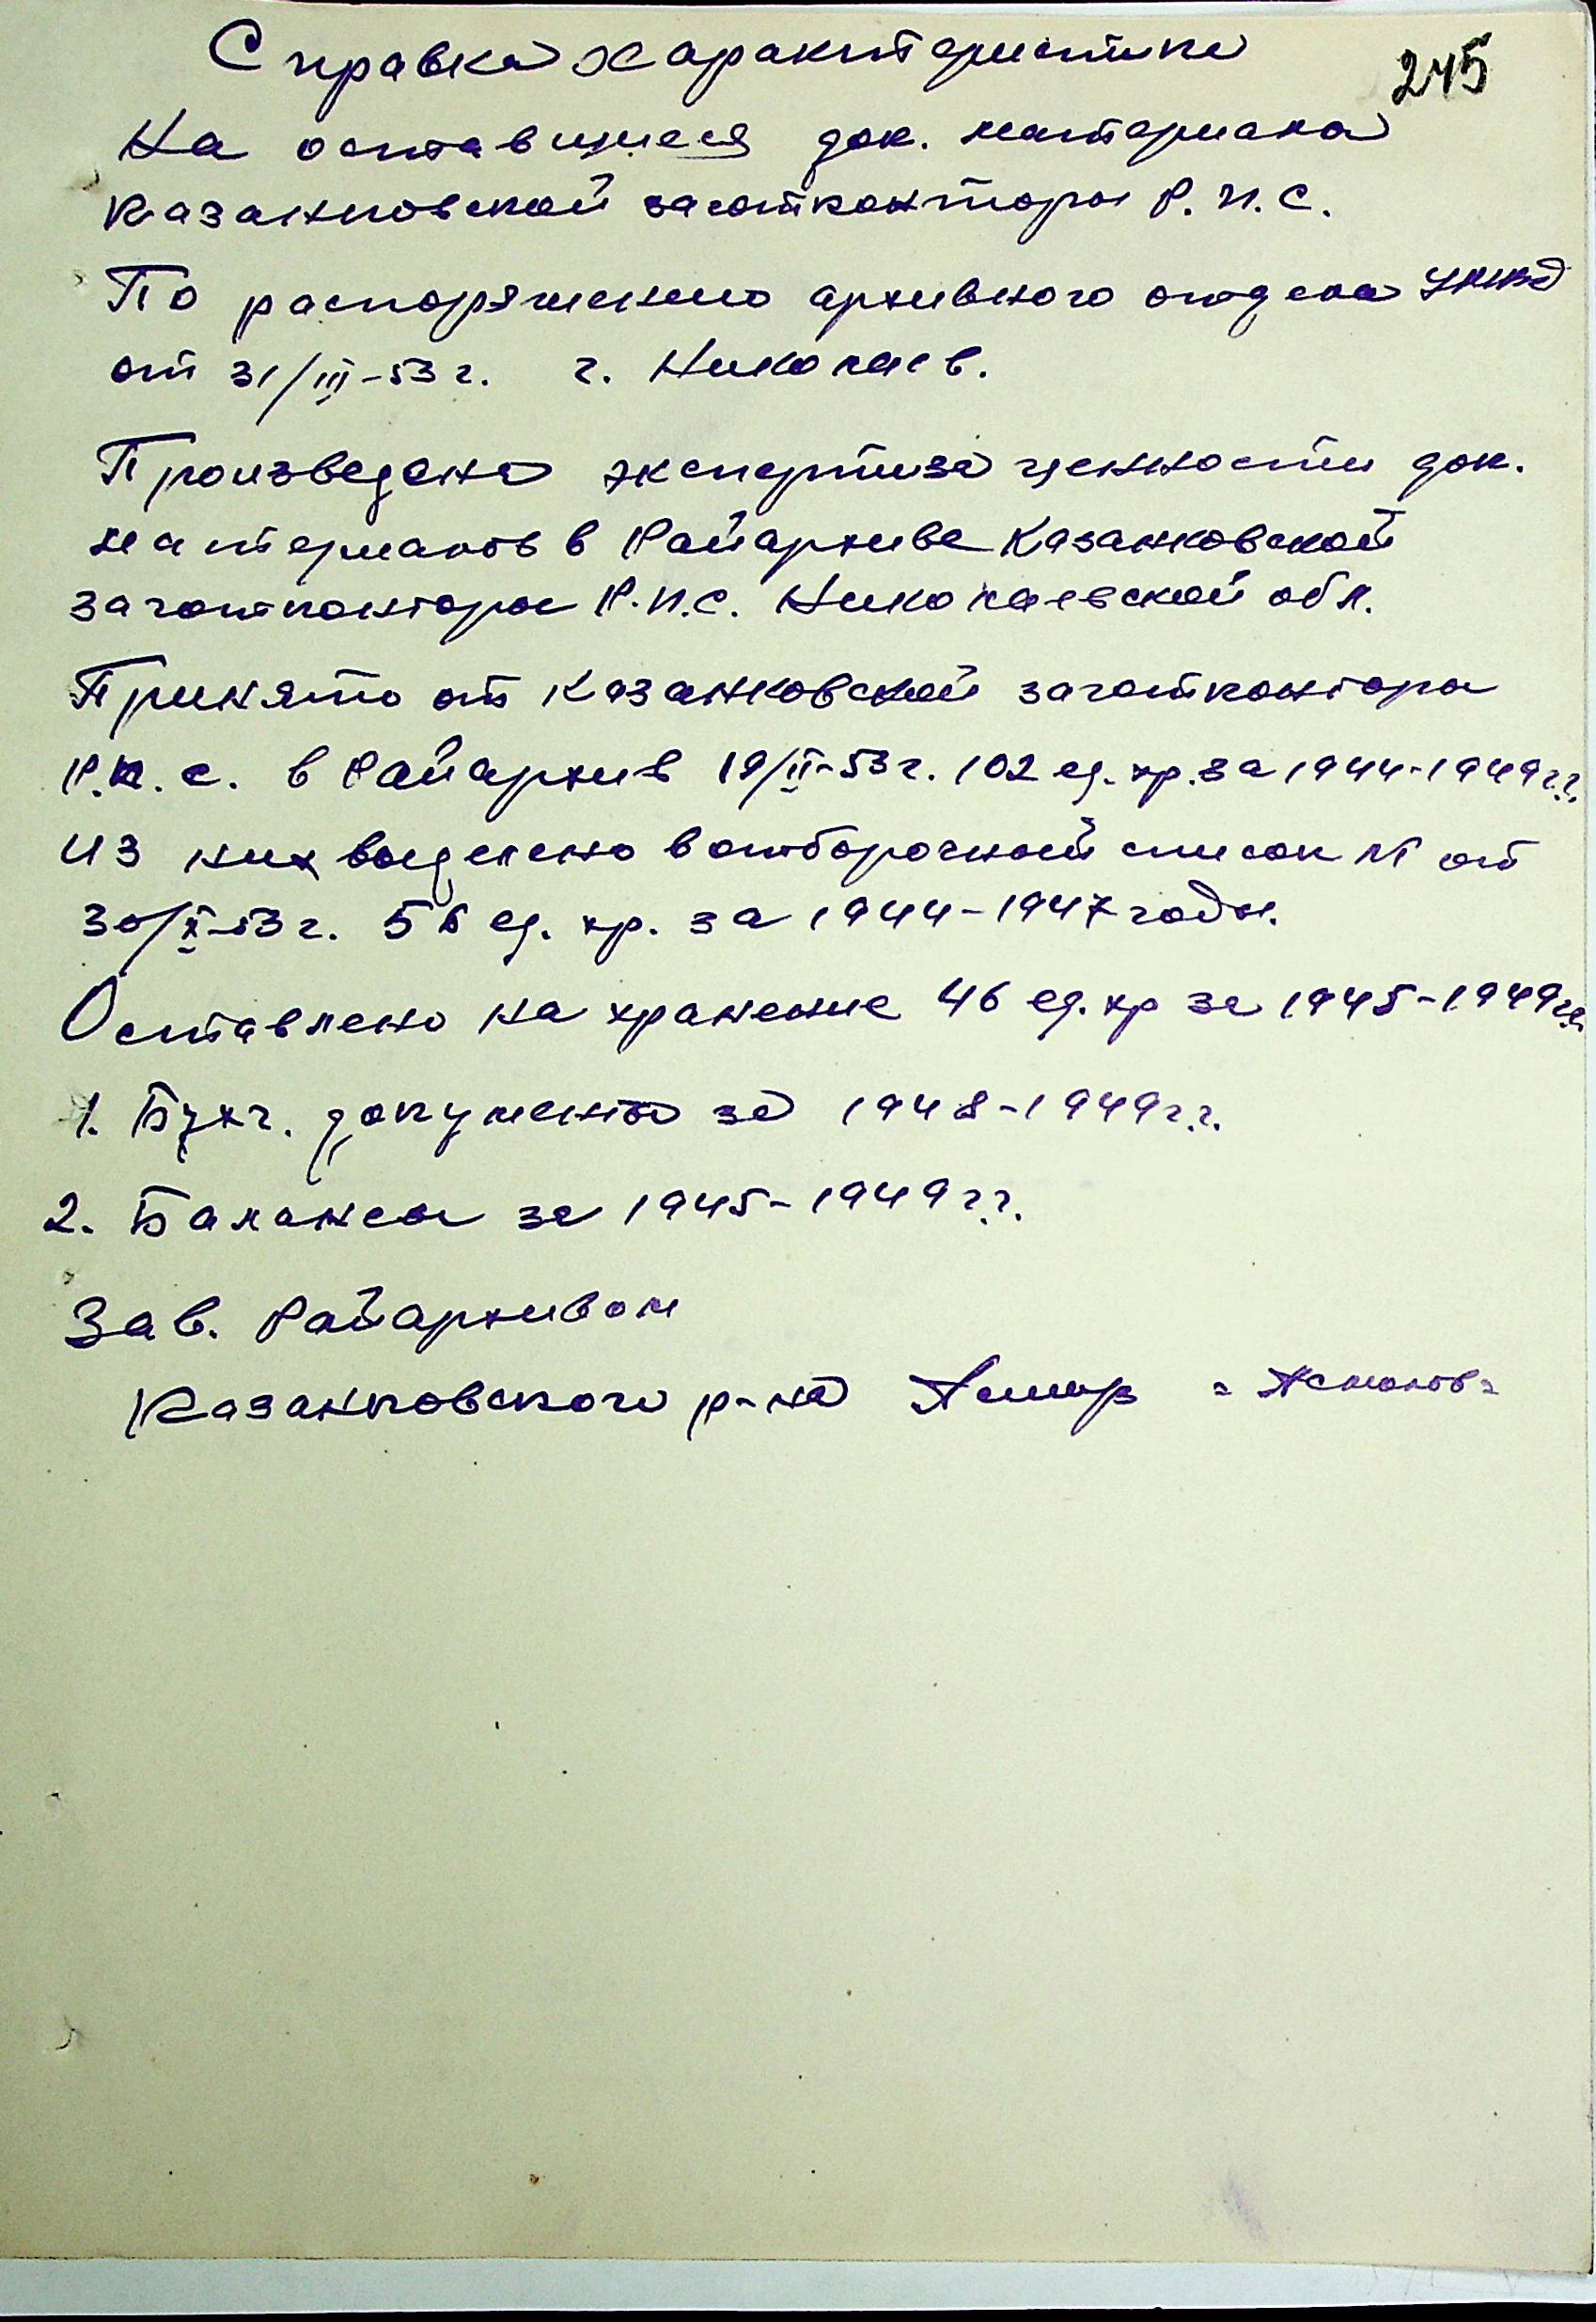 Справка характеристика
245
На оставшиеся док. материала
Казанковской заготконторы Р.П.С.
По распоряжению архивного отдела
от 31/III-53 г. г. Николаев.
Произведена экспертиза ценности док.
материалов в Райархиве Казанковской
заготконторы Р.П.С. Николаевской обл.
Принято от Казанковской заготконторы
Р.П.С. в Райархив 19/II-53 г. 102 ед. хр. за 1944-1949 г.г.
из них выделено в отборочный список № от
30/X-53 г. 56 ед. хр. за 1944-1947 годы.
Оставлено на хранение 46 ед. хр за 1945-1949 г.г.
1. Бухг. документы за 1948-1949 г.г.
2. Балансы за 1945-1949 г.г.
Зав. Райархивом
Казанковского р-на